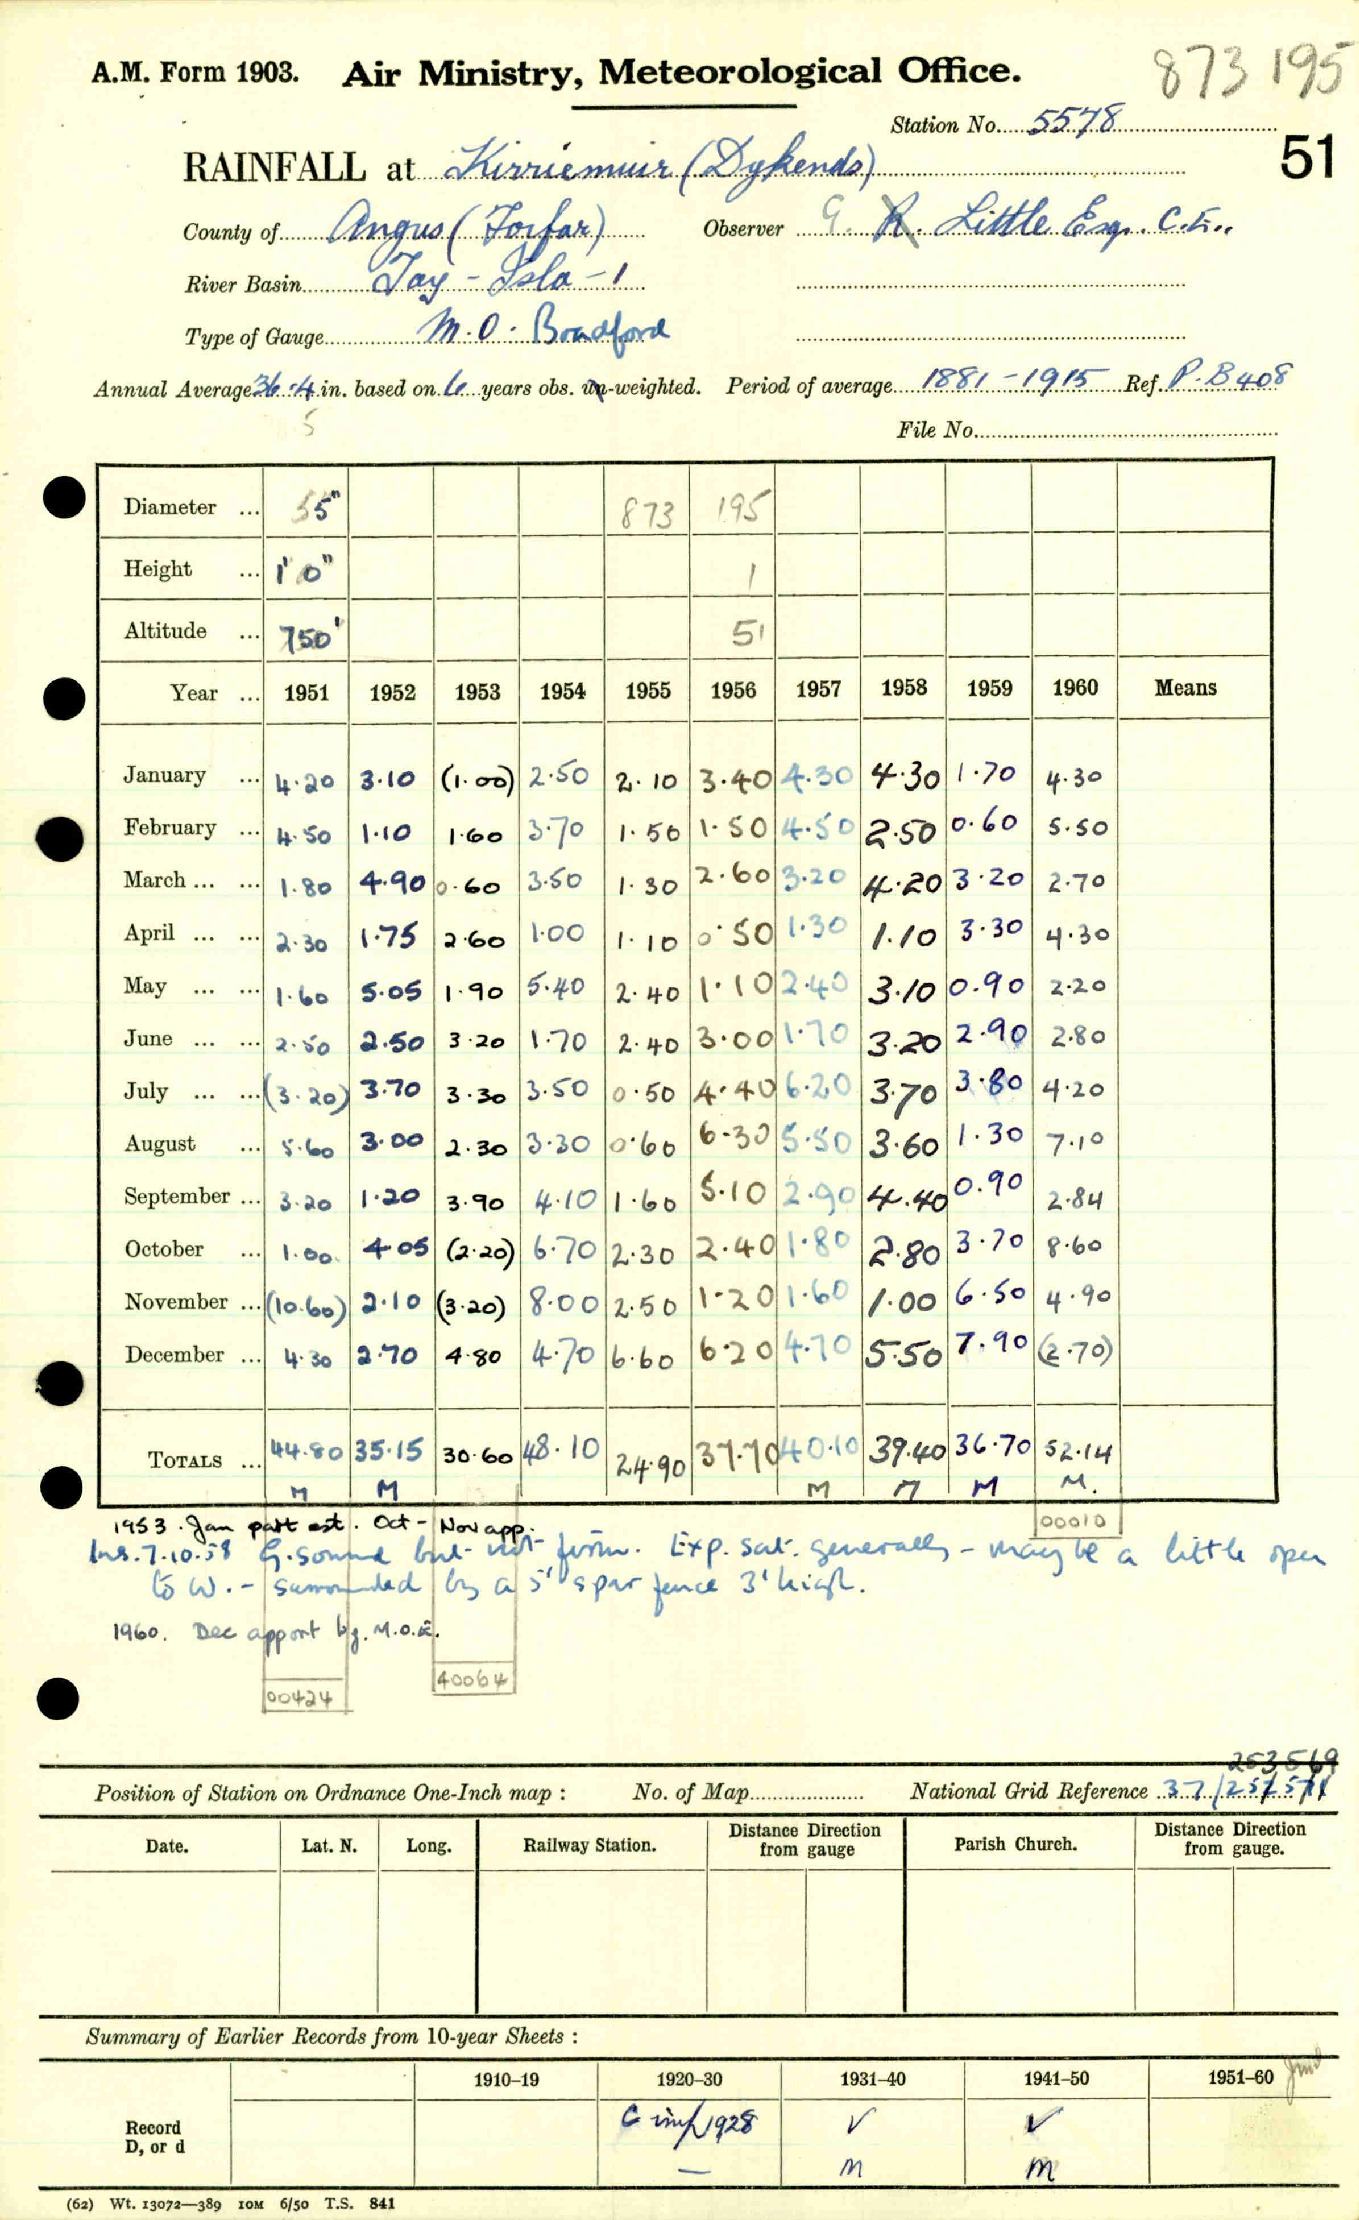 A.M. Form 1903. Air Ministry, Meteorological Office. 873 195
Station No. 5578
51
RAINFALL at Kirriemuir (Dykends)
County of Angus (Forfar) Observer G. R. Little Esq. C.E.,
River Basin Tay - Isla - 1
Type of Gauge M.O. Bradford
Annual Average 36.4 in. based on 6 years obs. un-weighted. Period of average 1881-1915 Ref. P.B408
5
File No.
Diameter ... 5" 873 195
Height ... 1' 0" 1
Altitude ... 750' 51
Year ... 1951 1952 1953 1954 1955 1956 1957 1958 1959 1960 Means
January ... 4.20 3.10 (1.00) 2.50 2.10 3.40 4.30 4.30 1.70 4.30
February ... 4.50 1.10 1.60 3.70 1.50 1.50 4.50 2.50 0.60 5.50
March ... ... 1.80 4.90 0.60 3.50 1.30 2.60 3.20 4.20 3.20 2.70
April ... ... 2.30 1.75 2.60 1.00 1.10 0.50 1.30 1.10 3.30 4.30
May ... ... 1.60 5.05 1.90 5.40 2.40 1.10 2.40 3.10 0.90 2.20
June ... ... 2.50 2.50 3.20 1.70 2.40 3.00 1.70 3.20 2.90 2.80
July ... ... (3.20) 3.70 3.30 3.50 0.50 4.40 6.20 3.70 3.80 4.20
August ... 5.60 3.00 2.30 3.30 0.60 6.30 5.50 3.60 1.30 7.10
September ... 3.20 1.20 3.90 4.10 1.60 5.10 2.90 4.40 0.90 2.84
October ... 1.00 4.05 (2.20) 6.70 2.30 2.40 1.80 2.80 3.70 8.60
November ... (10.60) 2.10 (3.20) 8.00 2.50 1.20 1.60 1.00 6.50 4.90
December ... 4.30 2.70 4.80 4.70 6.60 6.20 4.70 5.50 7.90 (2.70)
TOTALS ... 44.80 35.15 30.60 48.10 24.90 37.70 40.10 39.40 36.70 52.14
M M M M M M.
1953. Jan part est. Oct - Nov app. 00010
Ins. 7.10.58 G. sound but not firm. Exp. sat. generally - maybe a little open
to W. - surrounded by a 5' spar fence 3' high.
1960. Dec apport by. M.O.E.
00424 40064
253569
Position of Station on Ordnance One-Inch map : No. of Map National Grid Reference 37/257571
Date. Lat. N. Long. Railway Station. Distance from Direction gauge Parish Church. Distance from Direction gauge.
Summary of Earlier Records from 10-year Sheets :
1910–19 1920–30 1931–40 1941–50 1951–60
Record D, or d C imp 1928 ✓ ✓
— M M
(62) Wt. 13072—389 10M 6/50 T.S. 841